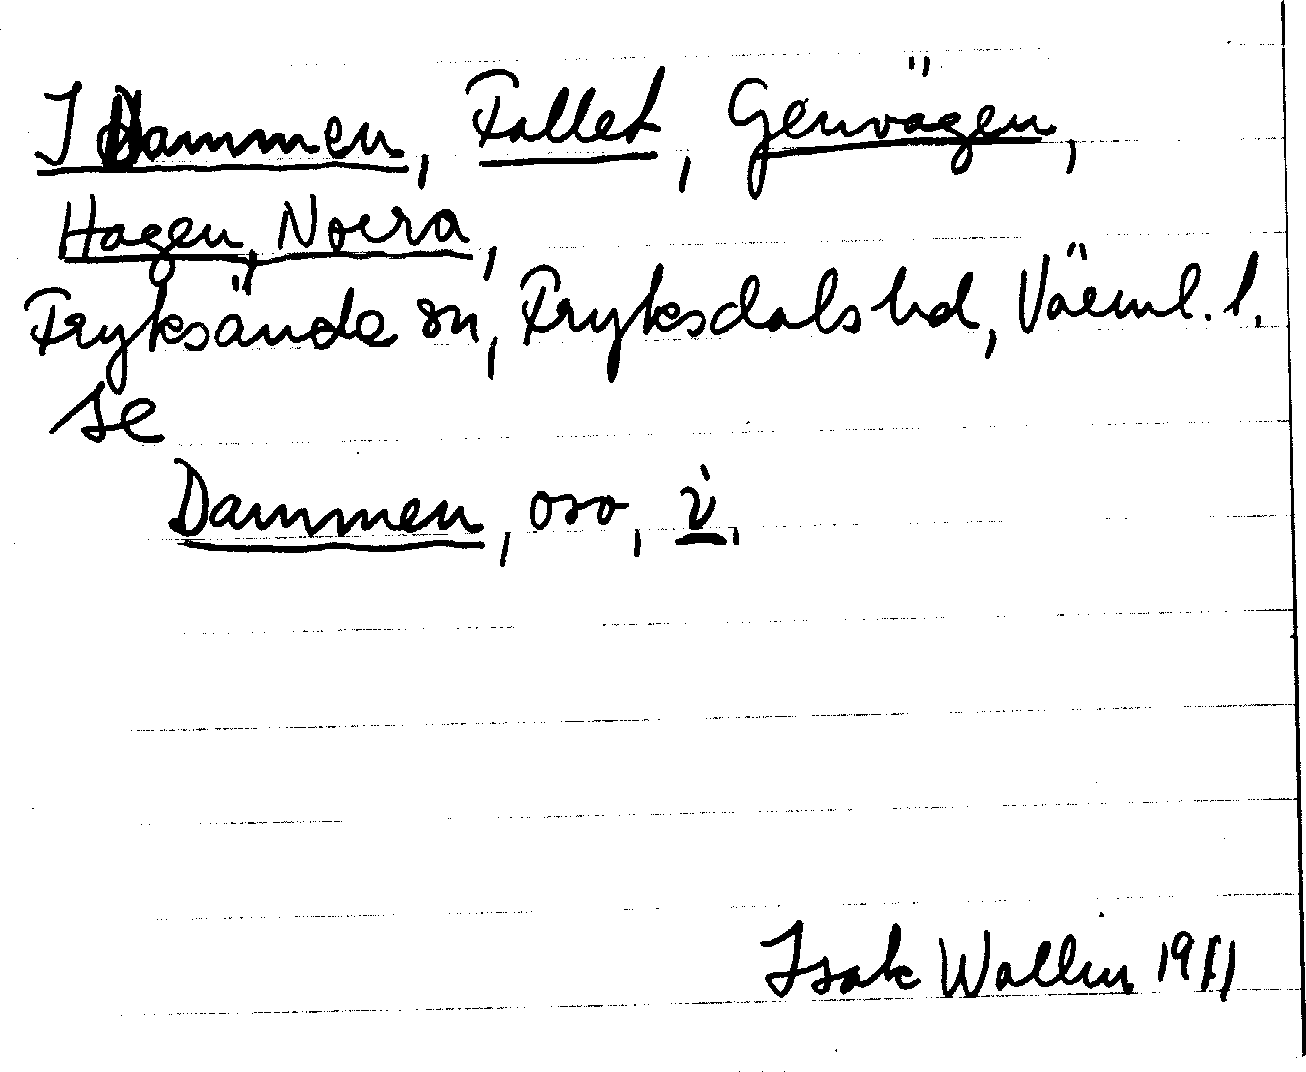 I Dammen, Fallet, Genvägen,
Hagen, Norra,
Fryksände sn, Fryksdals hd, Värml. l.
se
Dammen, oso, i.
Isak Wallin 1911